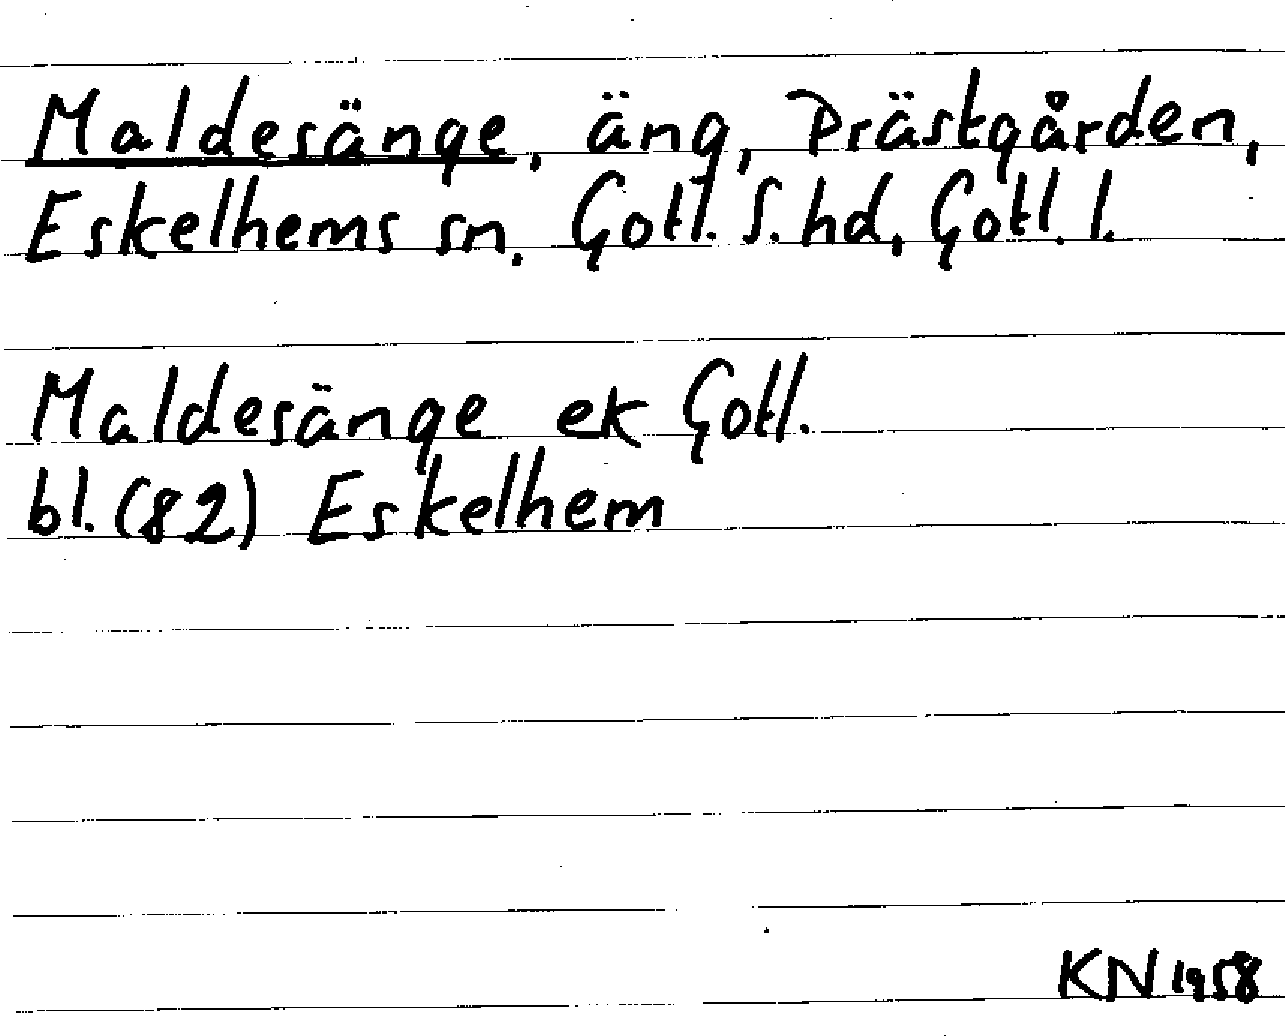 Maldesänge, äng, Prästgården,
Eskelhems sn. Gotl. S. hd, Gotl. l.
Maldesänge ek Gotl.
bl. (82) Eskelhem
KN 1958